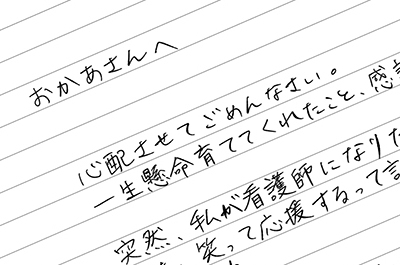 おかあさんへ
心配させてごめんなさい。
一生懸命育ててくれたこと、感
突然、私が看護師になりた
笑って応援するって言